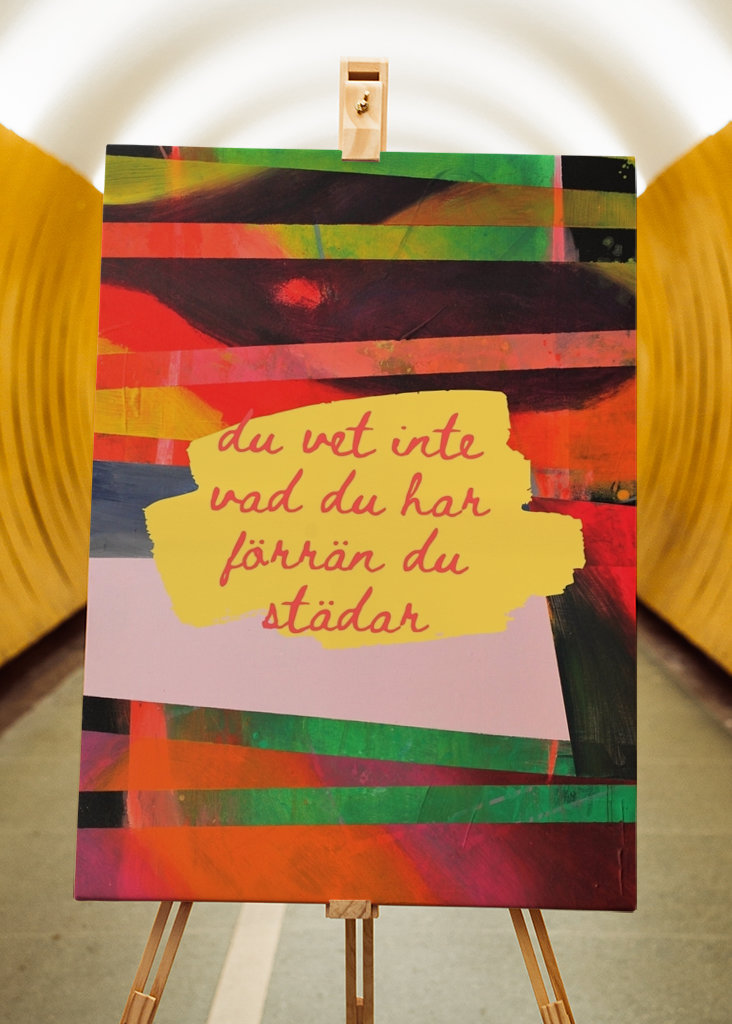 du vet inte
vad du har
förrän du
städar